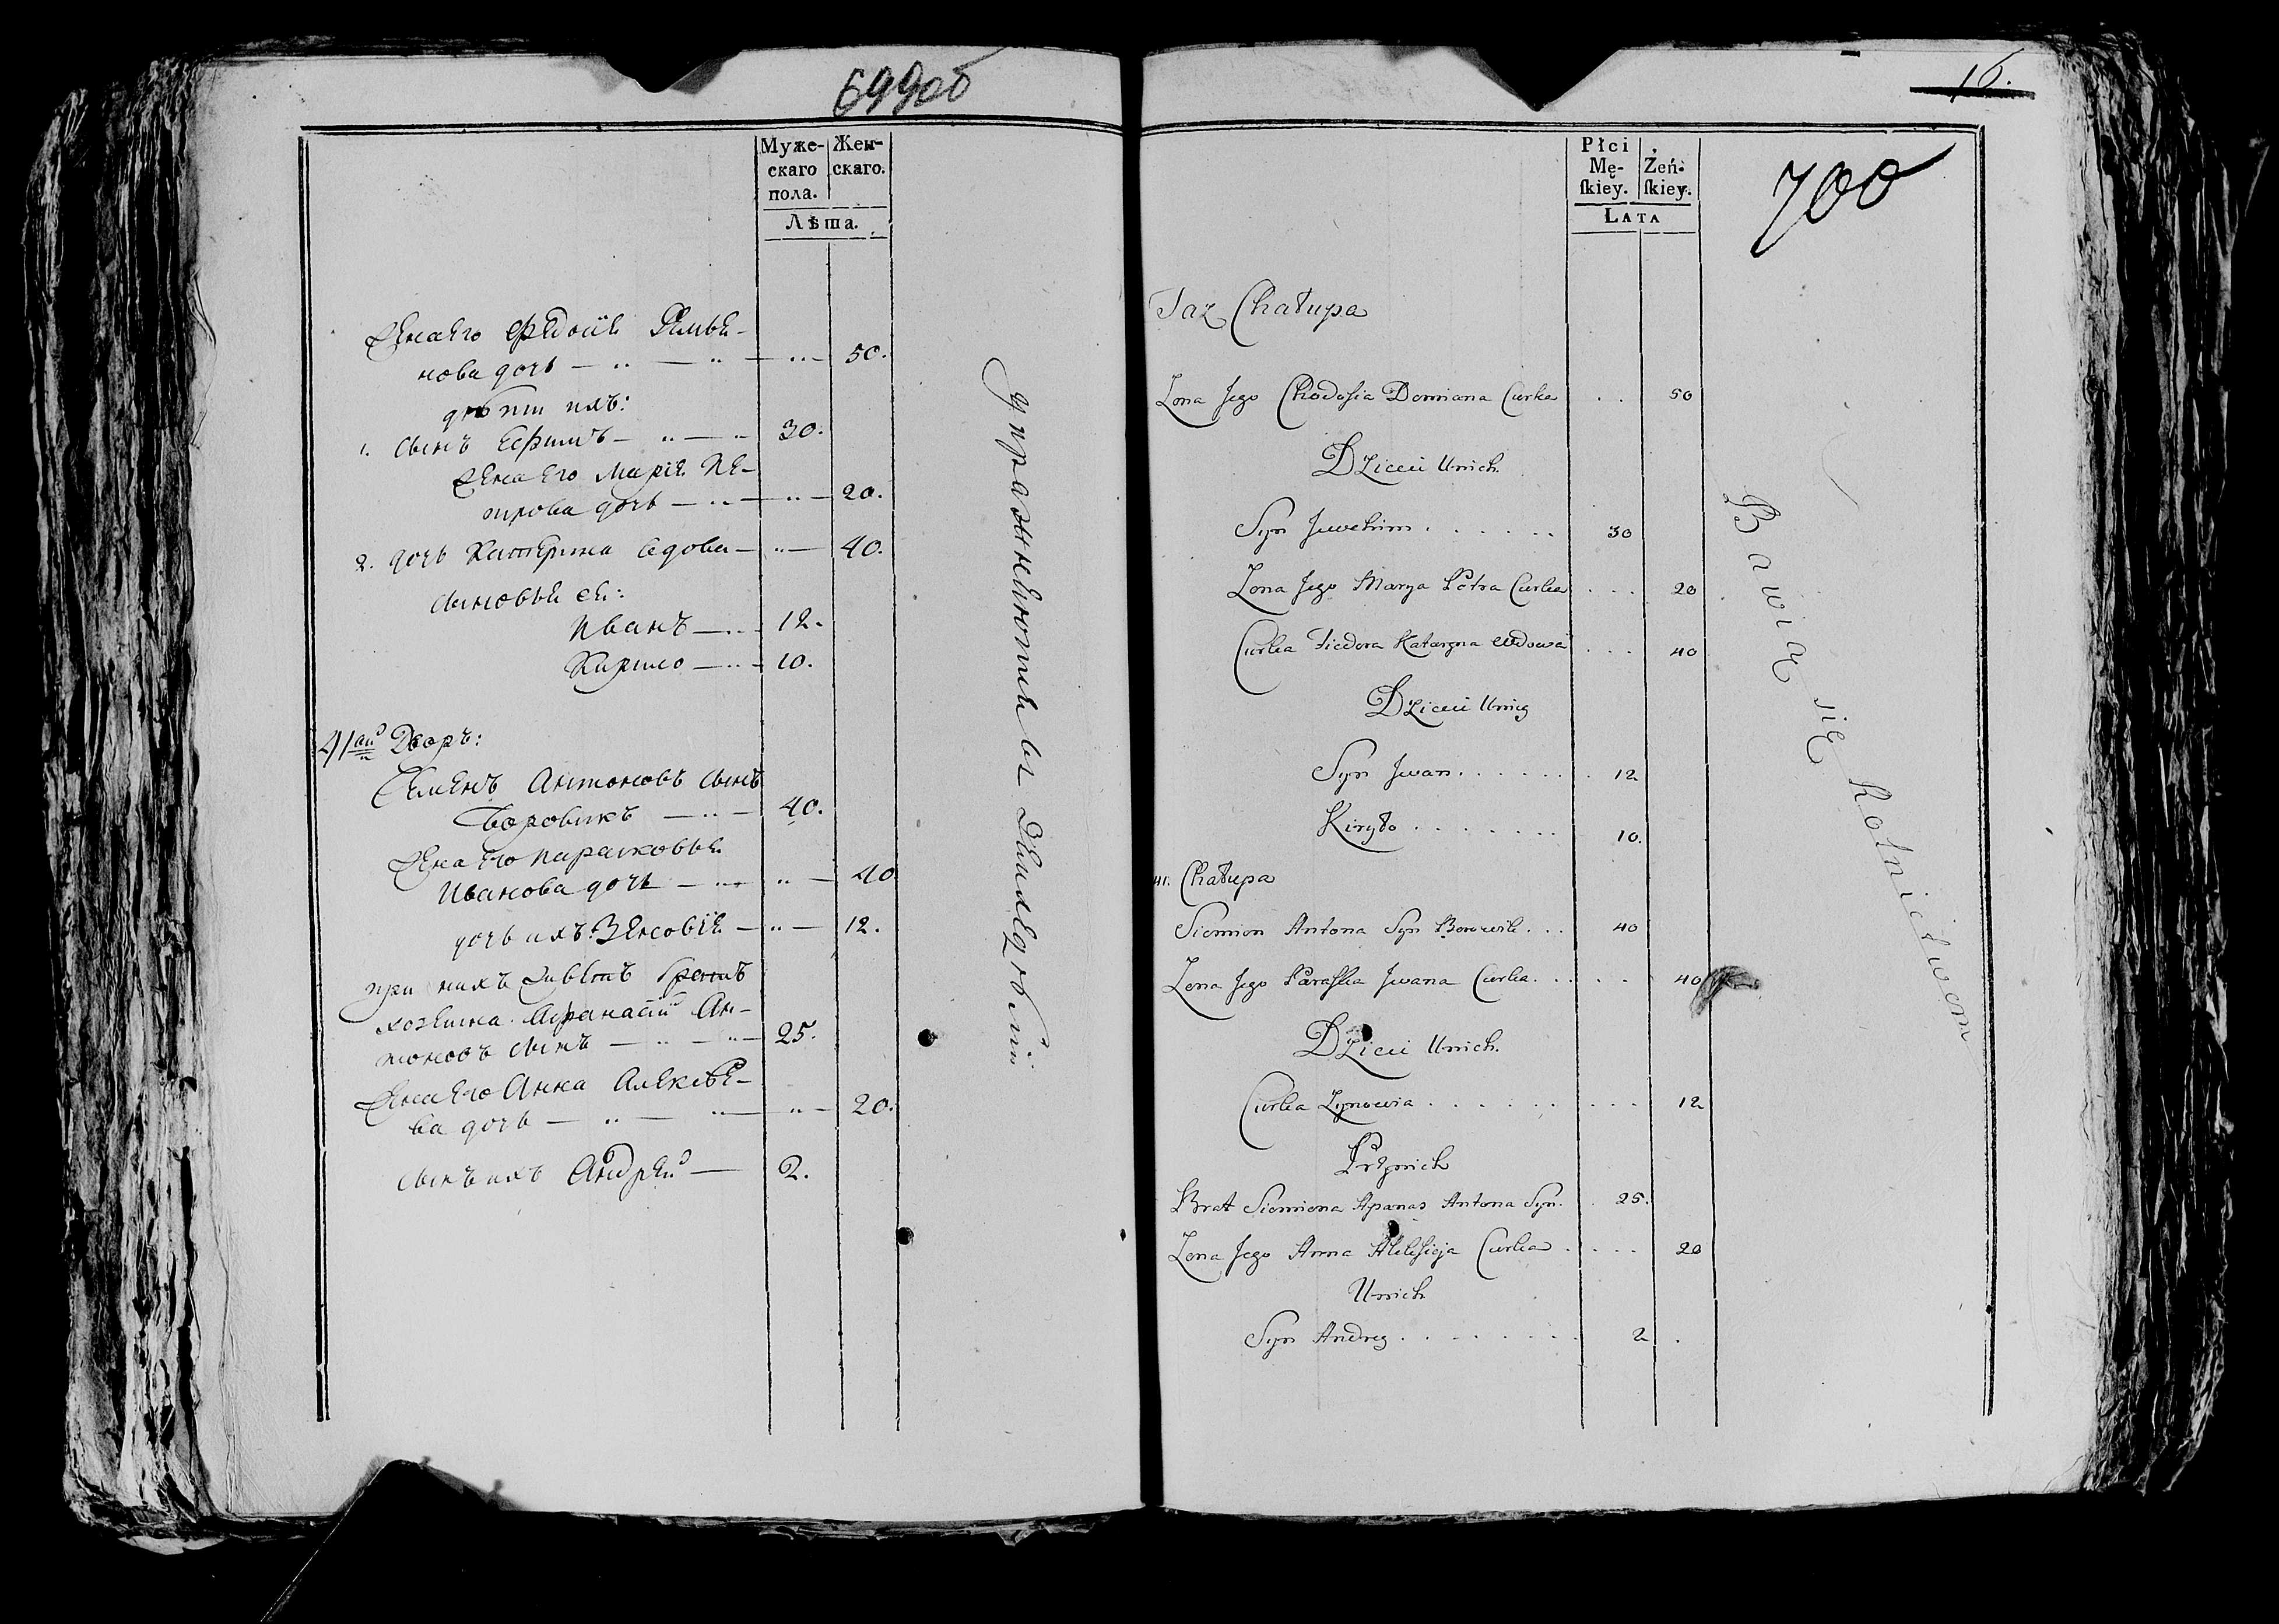 699об
Муже-
скаго
пола.
Жен-
скаго.
Лѣта.
Жена Его Ѳедосія Демья-
нова дочь — " — " — " — 50.
дѣти ихъ:
1. сынъ Ефимъ — " — " 30.
Жена Его Марія Пе-
трова дочь — " — " — 20.
2. дочь Катерина вдова — " — 40.
сыновья ея:
Иванъ — " — 12.
Кирило — " — 10.
41ой Дворъ:
Семенъ Антоновъ сынъ
Боровикъ — " — 40.
Жена Его Парасковья
Иванова дочь — " — " — 40
дочь ихъ: Зеновія — " — 12.
при нихъ Живетъ братъ
хозяина Афанасий Ан-
тоновъ сынъ — " — " — 25.
Жена Его Анна Алексѣе-
ва дочь — " — " — " — 20.
сынъ ихъ Андрей — 2.
Упражняются въ Земледѣліи
16.
700
Płci
Mę-
ſkiey.
Żeń-
ſkiey.
LATA
Taz Chałupa
Zona Jego Chodosia Domiana Curka . . 50
Dzieci Unich
Syn Juchim . . . . . 30
Zona Jego Marya Potra Curka . . . 20
Curka Fiedora Katarzyna Wdowa . . . 40
Dzieci Uniey
Syn Jwan . . . . . . 12
Kiryło . . . . . . . 10.
41. Chałupa
Siemion Antona Syn Borowik . . . 40
Zona Jego Paraska Jwana Curka . . . . 40
Dzieci Unich.
Curka Zynowia . . . . . . . . . 12
Przynich
Brat Siemiona Apanas Antona Syn . . 25.
Zona Jego Anna Alekſieja Curka . . . . 20
Unich
Syn Andrey . . . . . . . . 2 .
Bawią się Rolnictwem